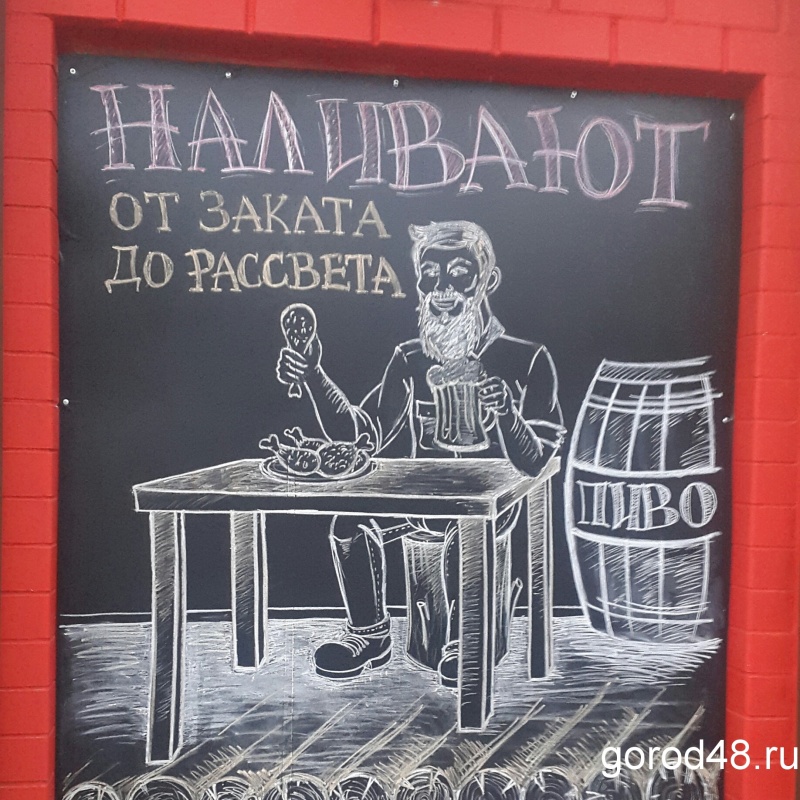 НАЛИВАЮТ
ОТ ЗАКАТА
ДО РАССВЕТА
ПИВО
gorod48.ru